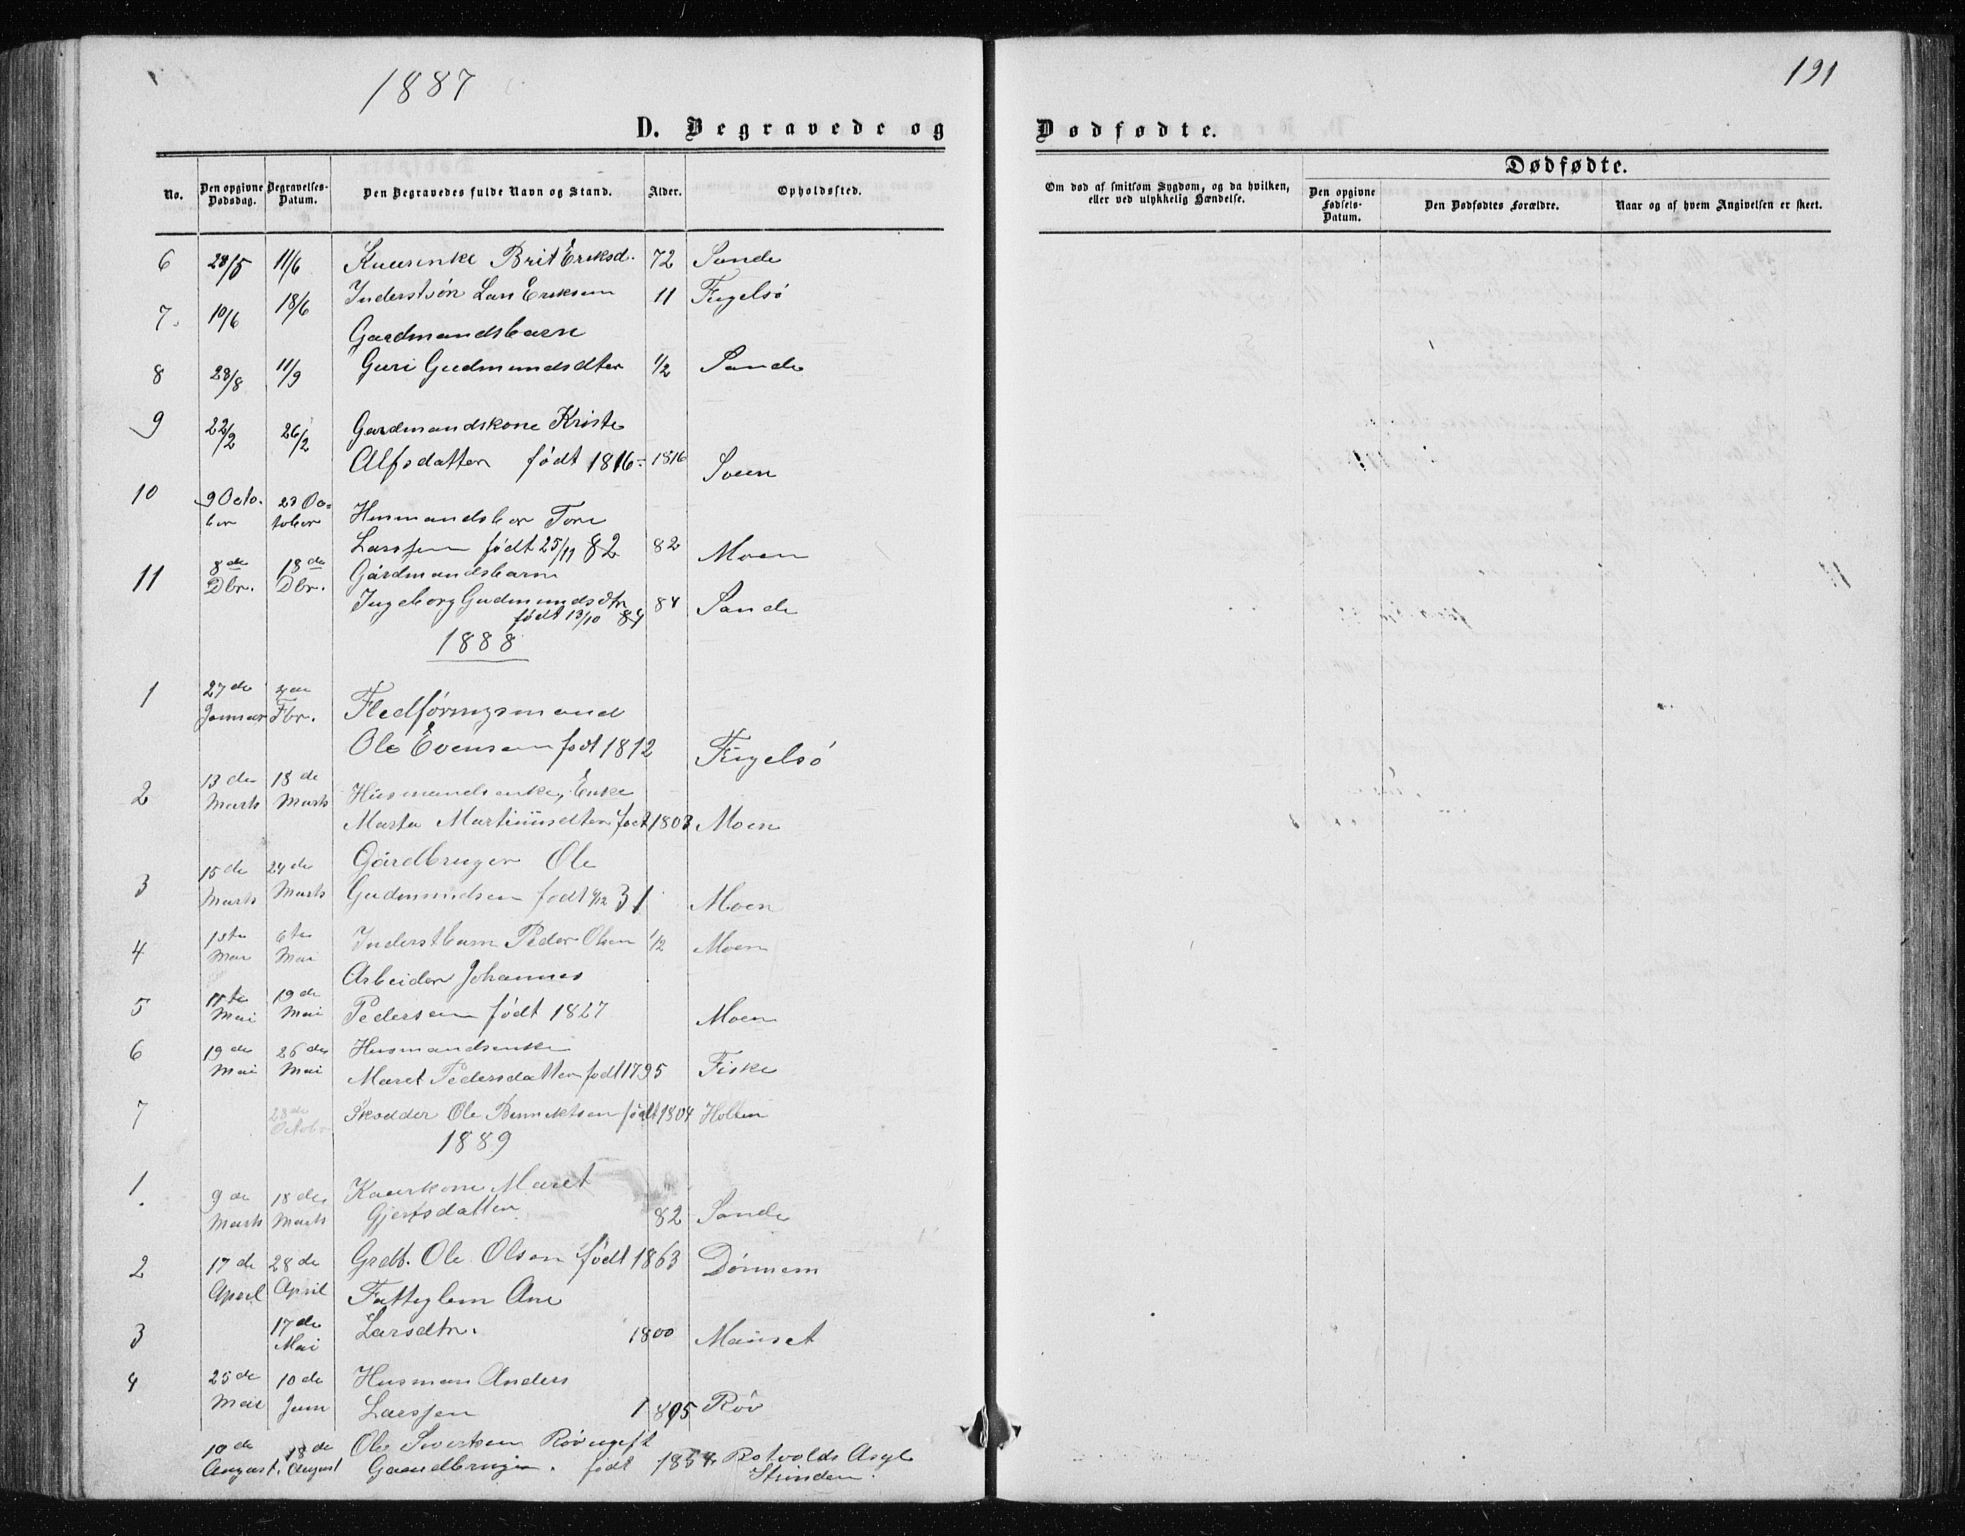 1887
191
D. Begravede og
Dødfødte.
No.
Den opgivne Dødsdag.
Begravelses-Datum.
Den Begravedes fulde Navn og Stand.
Alder.
Opholdssted.
Om død af smitsom Sygdom, og da hvilken, eller ved ulykkelig Hændelse.
Dødfødte.
Den opgivne Fødsels-Datum.
Den Dødfødtes Forældre.
Naar og af hvem Angivelsen er skeet.
6 28/5 11/6 Kaarenke Brit Eriksd. 72 Sande
7. 10/6 18/6 Inderstsøn Lars Eriksen 11 Fugelsø
Gardmandsbarn
8 28/8 11/9 Guri Gudmundsdter 1/2 Sande
9 22/2 26/2 Gardmandskone Kriste
Alfsdatter født 1816 1816 Sven
10 9 Octo- 23 Oc-
ber tober Husmandsbar Tore
Larssen født 25/11 82 82 Moen
11 8de 18de Gårdmandsbarn
Dbr. Dbr. Ingeborg Gudmundsdtr 84 Sande
født 13/10 84
1888
1 27de
Januar Fbr. Fledføringsmand
Ole Evensen født 1812 Fugelsø
2 13de 18de Husmandsenke, Enke
Marts Marts Marta Martinusdtter født 1803 Moen
3 15de 24de Gårdbruger Ole
Marts Marts Gudmundsen født 9/12 31 Moen
4 1ste 6te Inderstbarn Peder Olsen 1/2 Moen
Mai Mai
Arbeider Johannes
5 11te 19de Pedersen født 1827 Moen
Mai Mai
6 19de 26de Husmandsenke
Mai Mai Maret Pedersdatter født 1795 Fiske
7 28de Skrædder Ole født 1804 Holten
October
1889
1. 9de 18de Kaarkone Maret
Marts Marts Gjertsdatter 82 Sande
2 17de 28de Grdb. Ole Olsen født 1863 Dønnem
April April
Fattiglem Ane
3 17de Larsdtr. 1800 Mauset
Mai
4 25de 10de Husman Anders
Mai Juni Larssen 1805 Røv
10de 18de Ole Sivertsen Røv ugift
August. August Gaardbruger. født 1858. Rotvolds Asyl
Strinden.